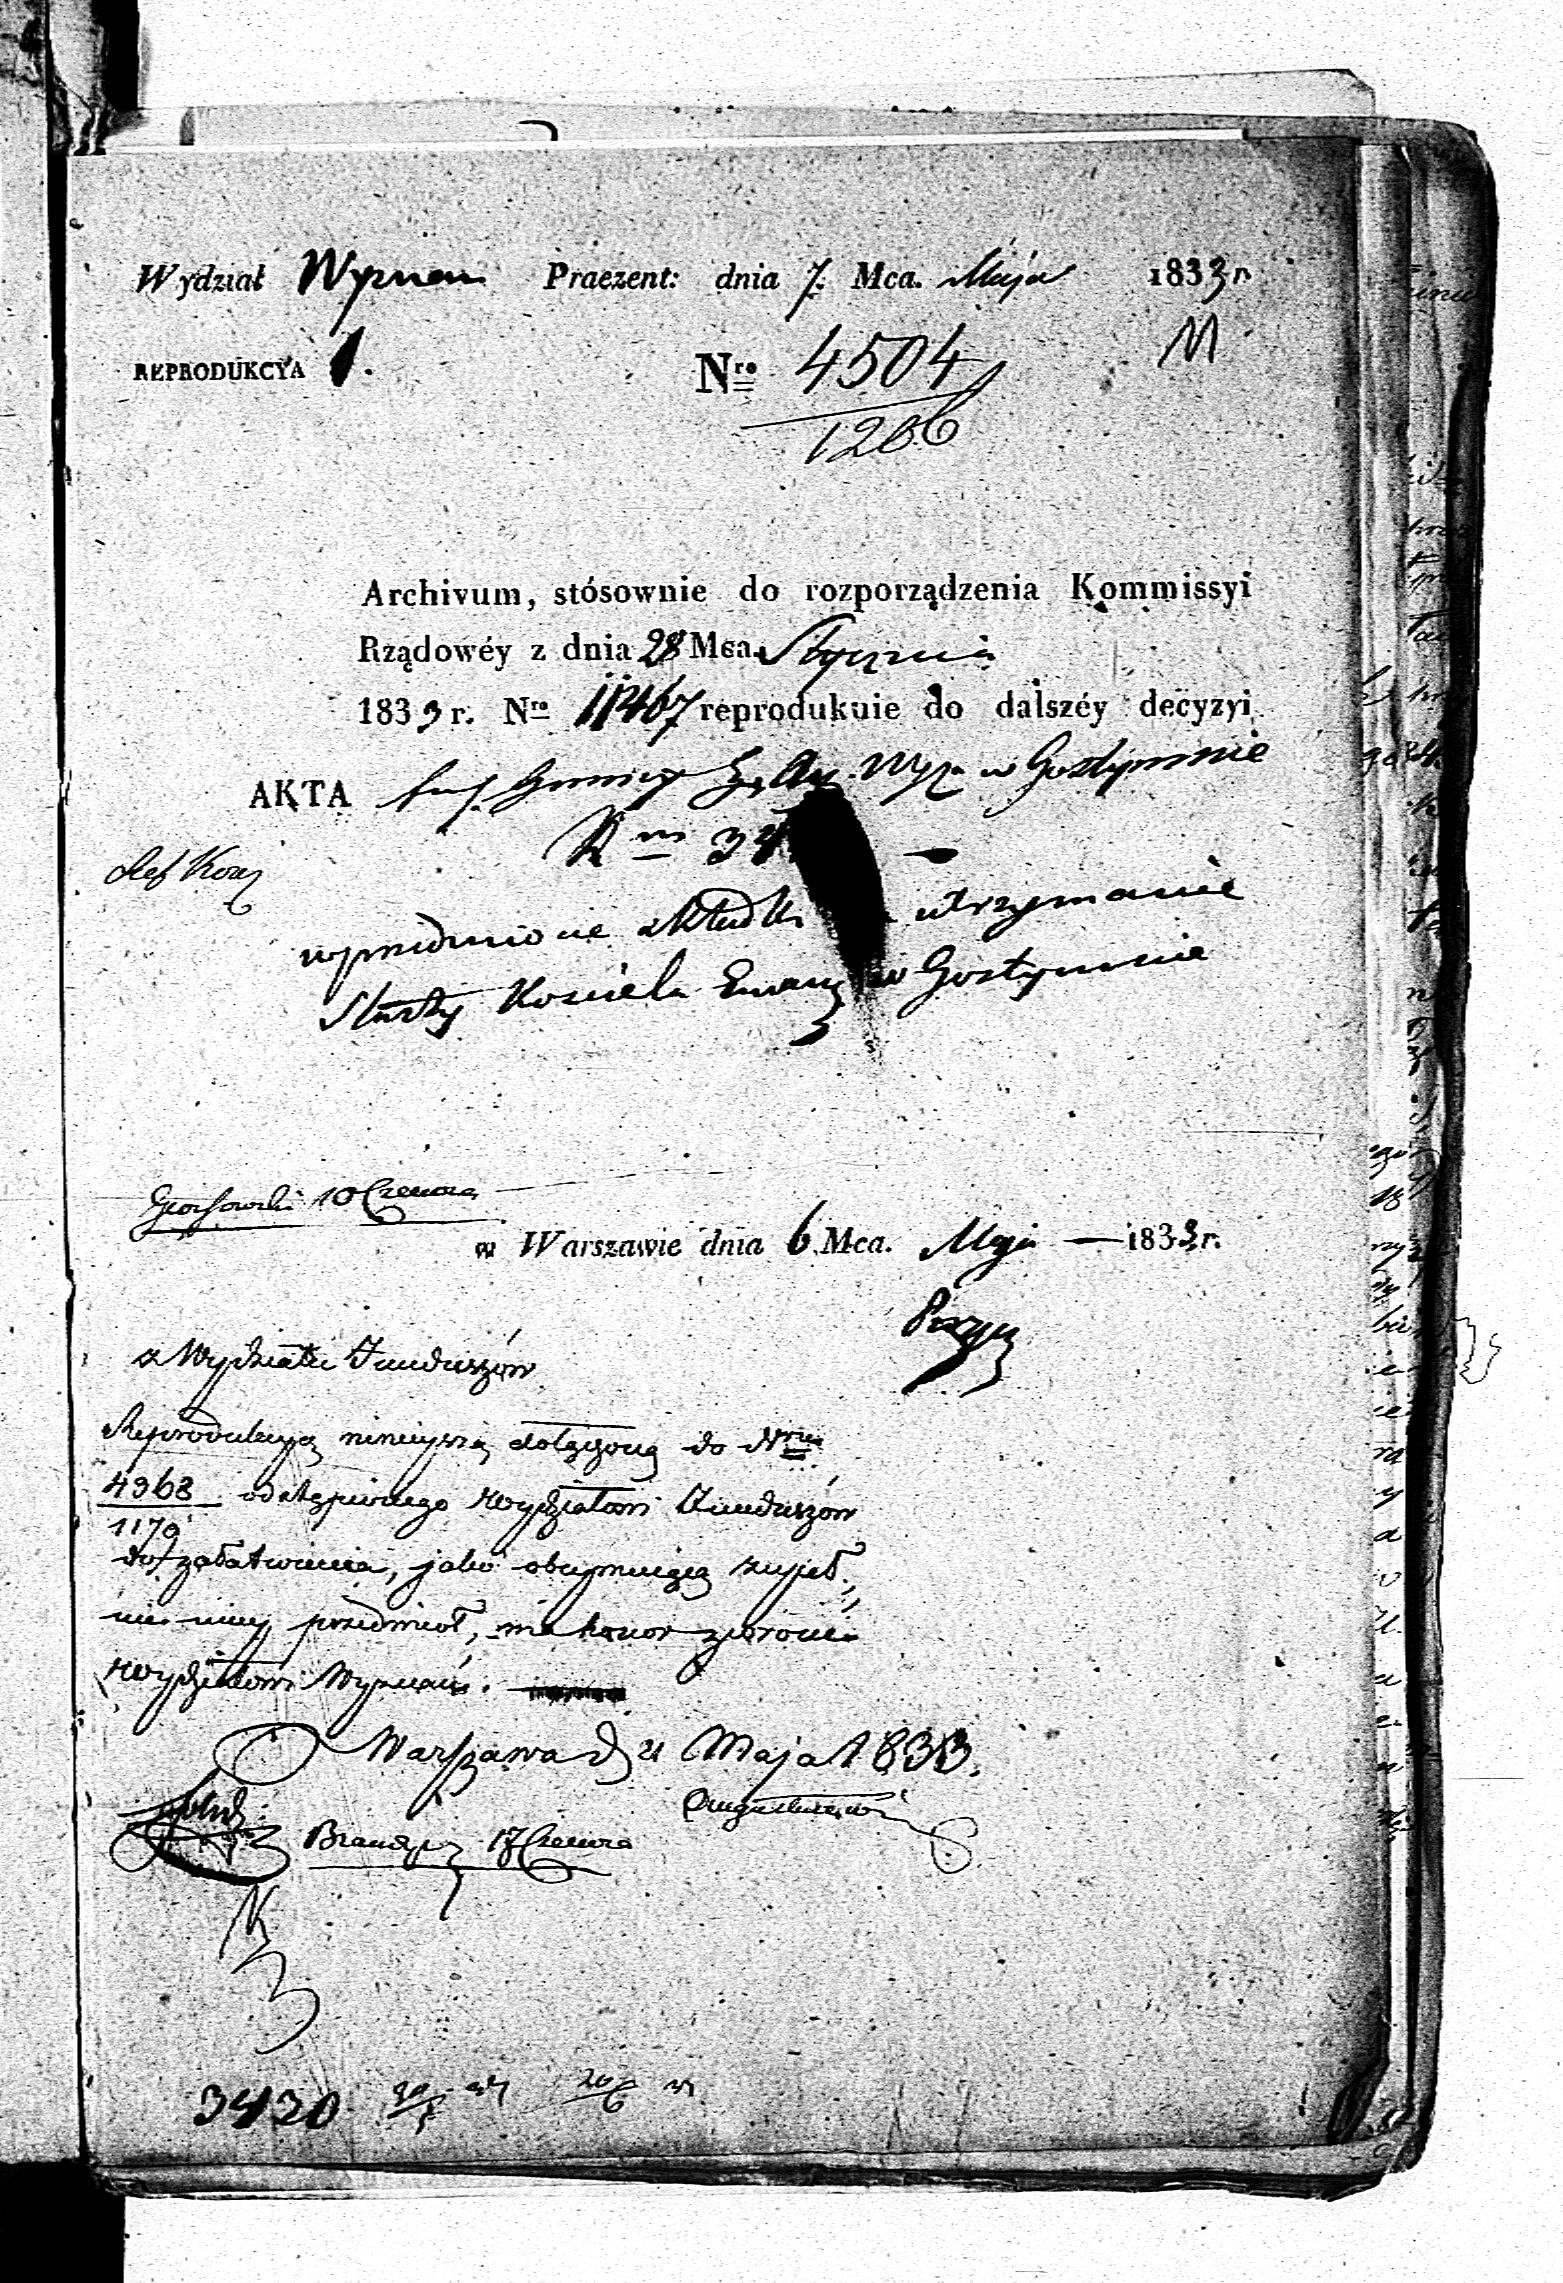 Wydział Wyznań Praezent: dnia 7. Mca. Maja 1833 r.
REPRODUKCYA 1. Nro 4504 M
1266
Archivum, stósownie do rozporządzenia Kommissyi
Rządowéy z dnia 28 Mca. Stycznia
1833 r. Nro 11467 reprodukuie do dalszéy decyzyi
AKTA Gminy Ew. Aug. Wyz. w Gostyninie
34
względem składki utrzymanie
Służby Kościoła Ewang w Gostyninie
Grochowski 10 Czerwca
w Warszawie dnia 6 Mca. Maja 1833 r.
z Wydziału Funduszów
Reprodukcyą ninieyszą dołączoną do Nru
4968 odstąpionego Wydziałowi Funduszów
1170
do załatwienia, jako obeymuiącą zupeł-
nie inny przedmiot, ma honor zwrócić
Wydziałowi Wyznań.
Warszawa d 21 Maja 1833.
17 Czerwca
3430